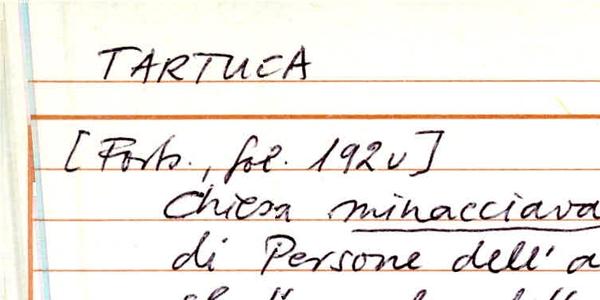 TARTUCA
[Forts., fol. 192v]
Chiesa minacciava
di Persone dell' a